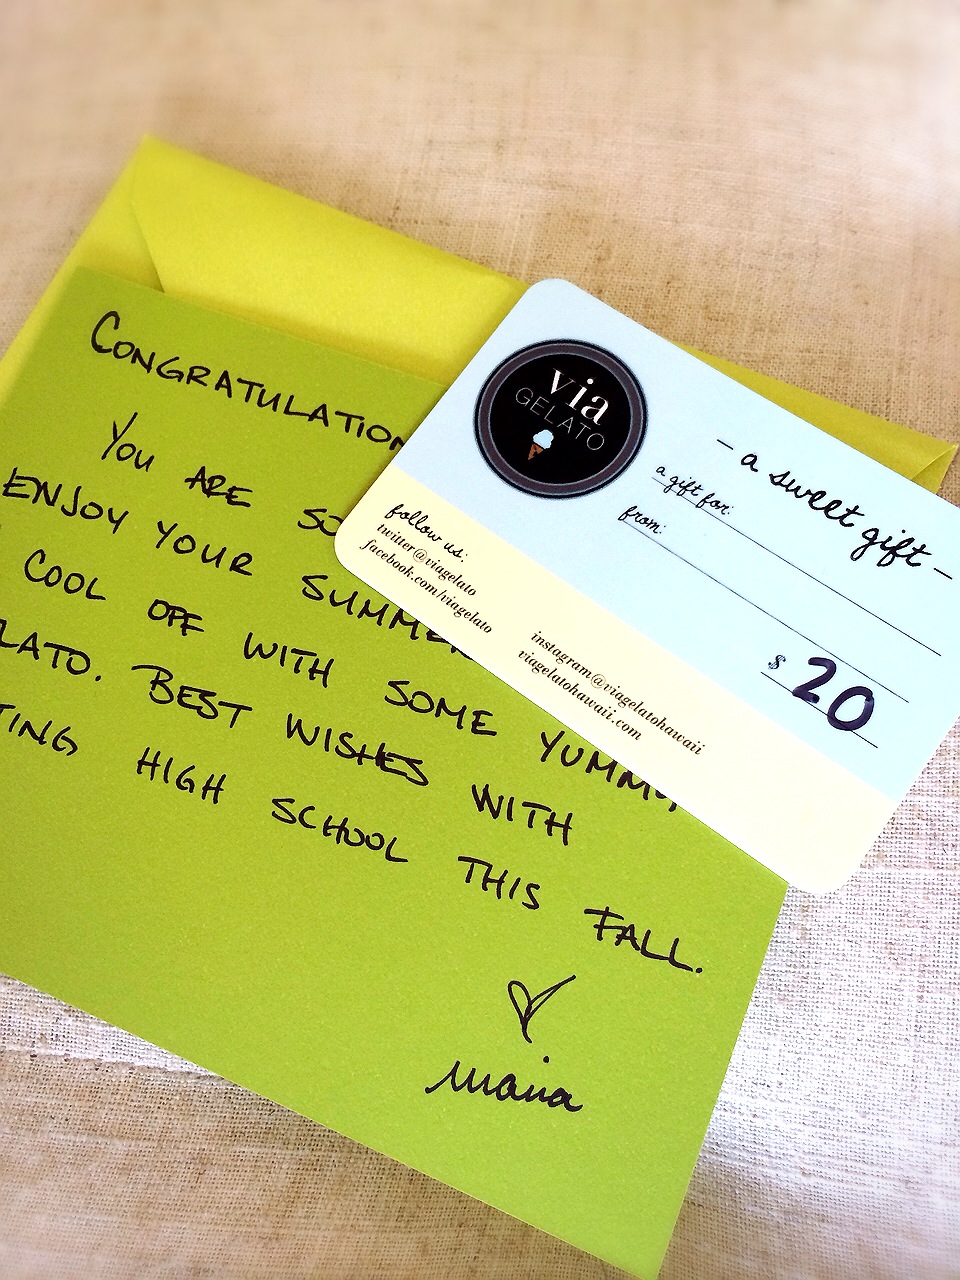 CONGRATULATION
YOU ARE SO
ENJOY YOUR SUMMER
COOL OFF WITH SOME YUMMY
LATO. BEST WISHES WITH
TING HIGH SCHOOL THIS FALL.
maria
via
GELATO
- a sweet gift -
a gift for:
from:
$ 20
follow us:
twitter@viagelato
facebook.com/viagelato
instagram@viagelatohawaii
viagelatohawaii.com